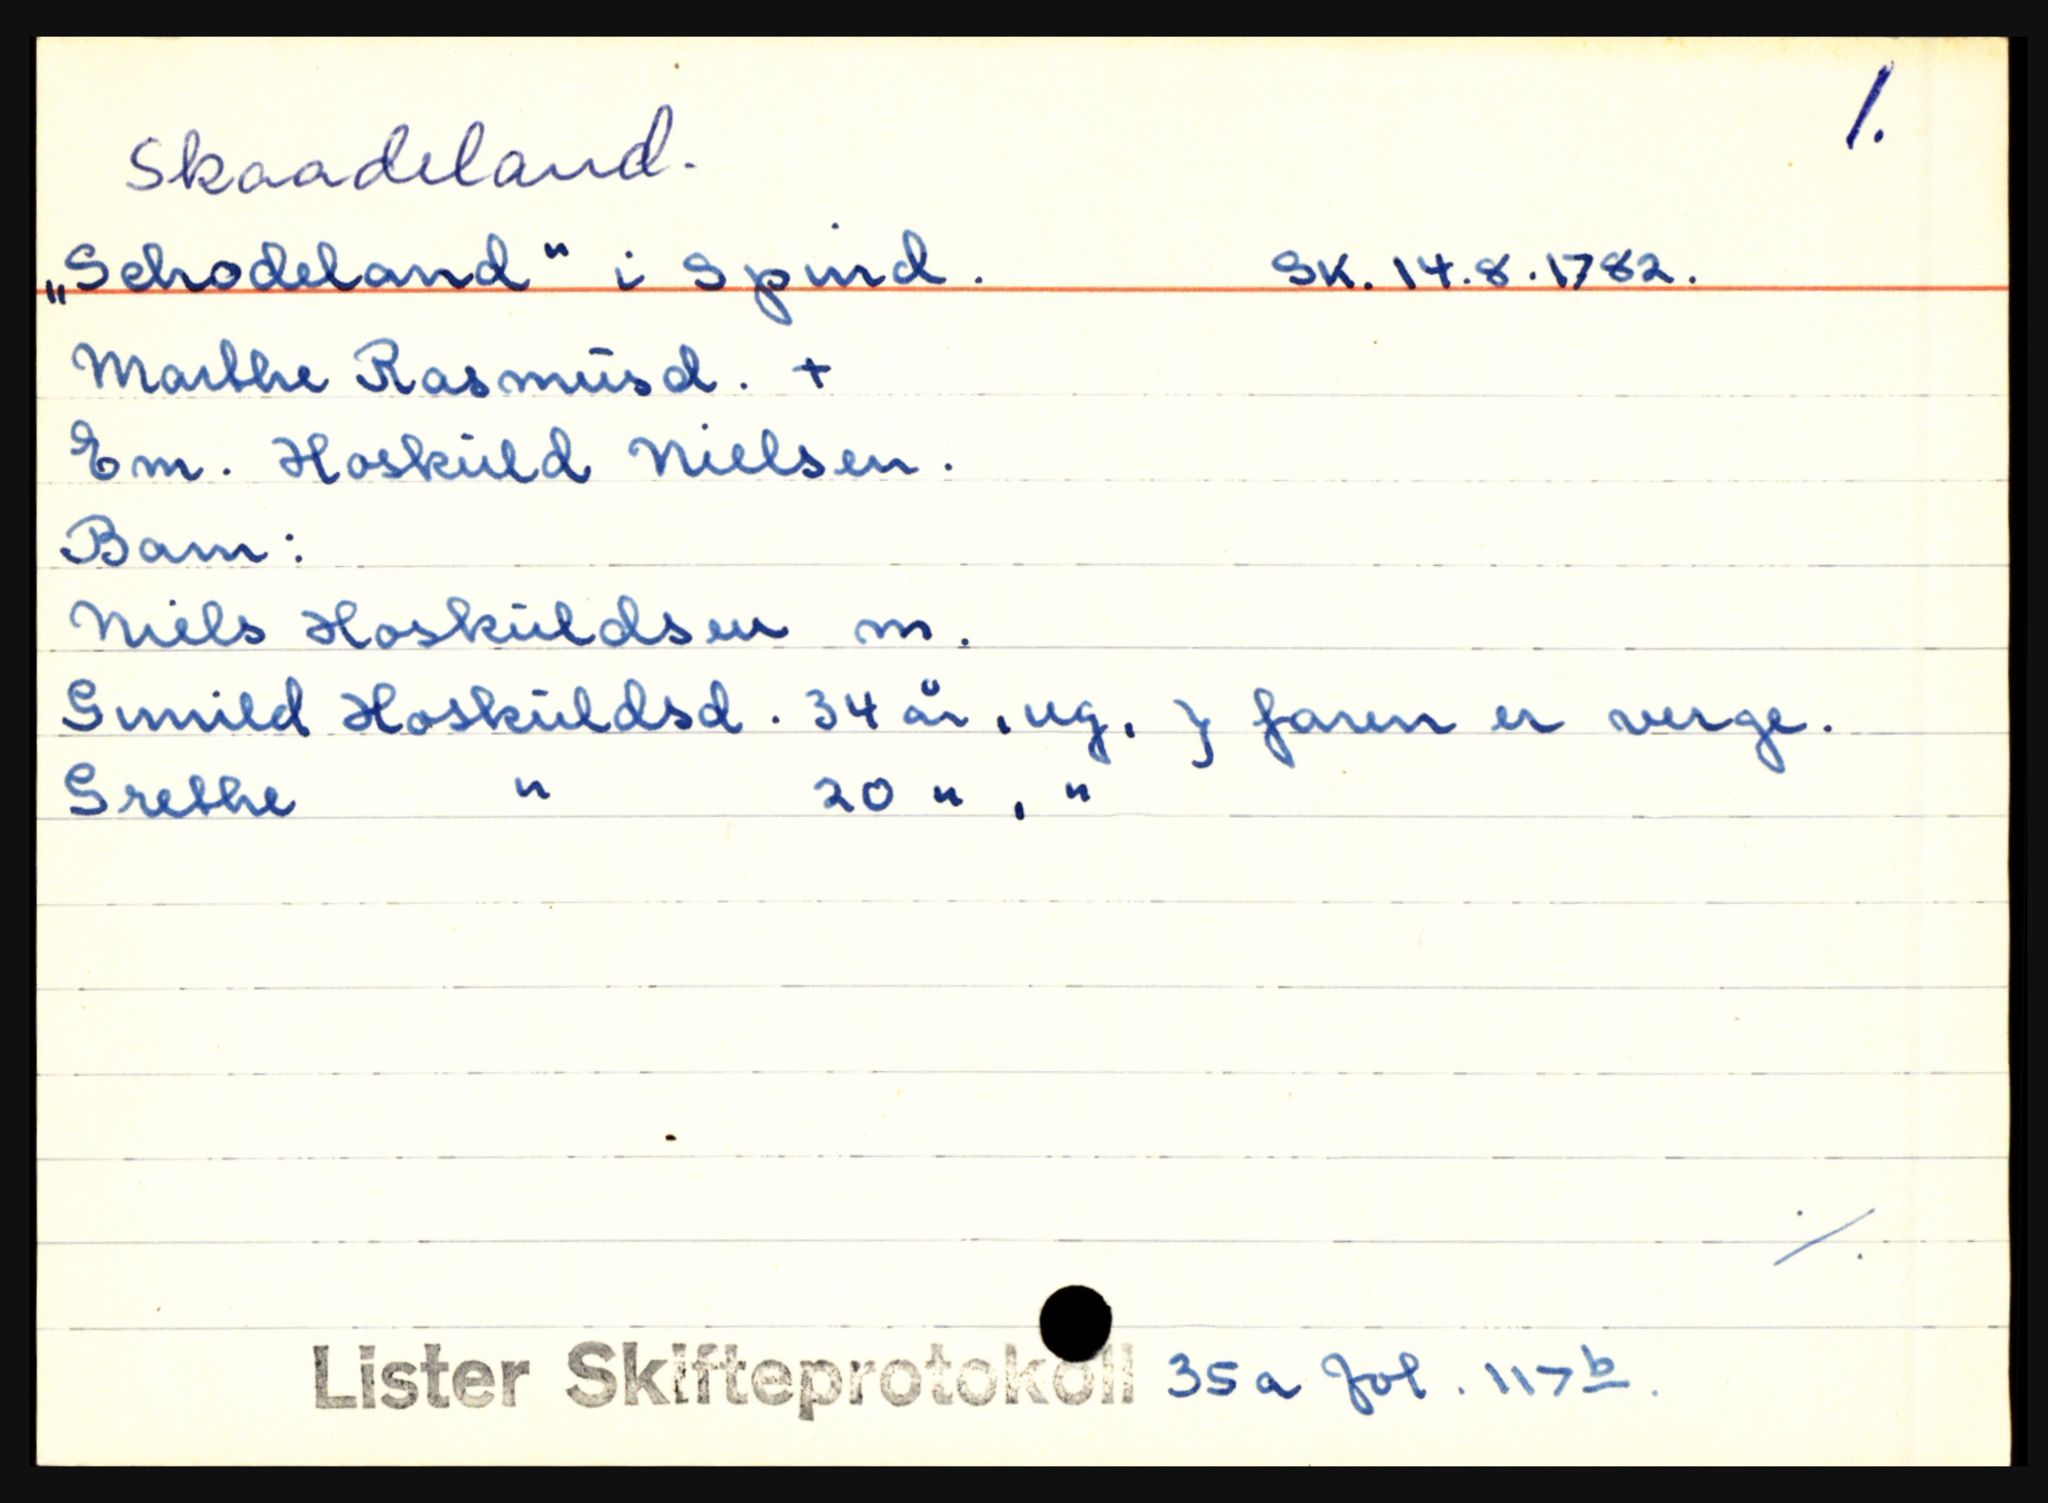 1.
Skaadeland.
„Schodeland“ i Spind. Sk. 14.8.1782.
Marthe Rasmusd. +
Em. Hoskuld Nielsen.
Barn:
Niels Hoskuldsen m.
Gunild Hoskuldsd. 34 år, ug. } faren er verge.
Grethe " 20 ", "
./.
Lister Skifteprotokoll 35a fol. 117b.